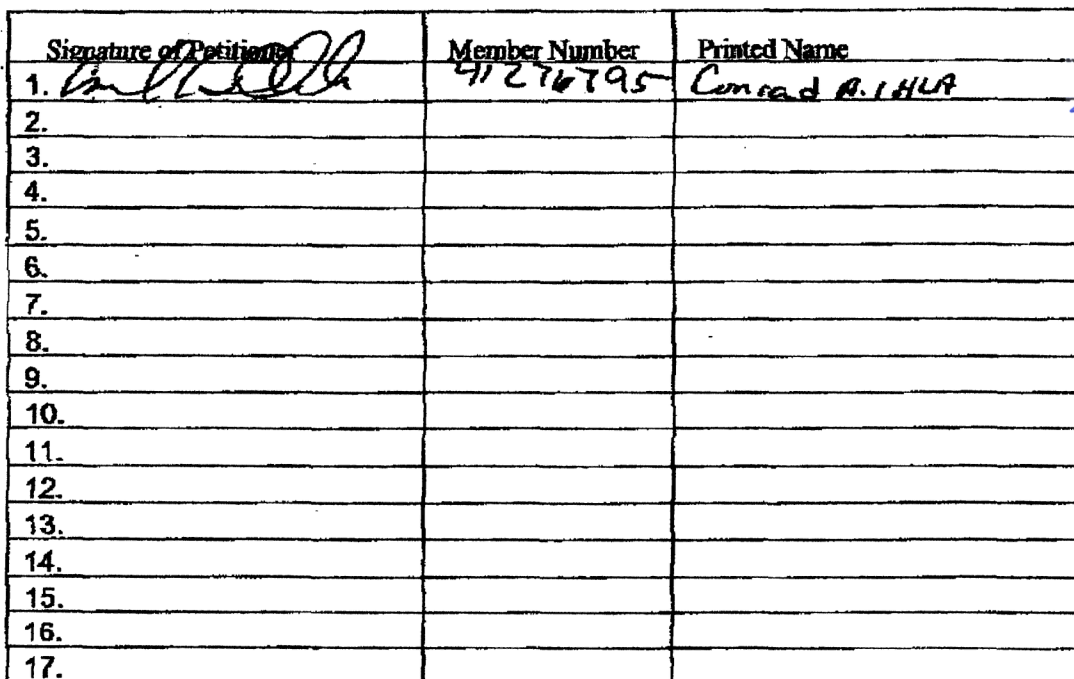 Signature of Petitioner Member Number Printed Name
1. 41276795 Conrad A.
2.
3.
4.
5.
6.
7.
8.
9.
10.
11.
12.
13.
14.
15.
16.
17.